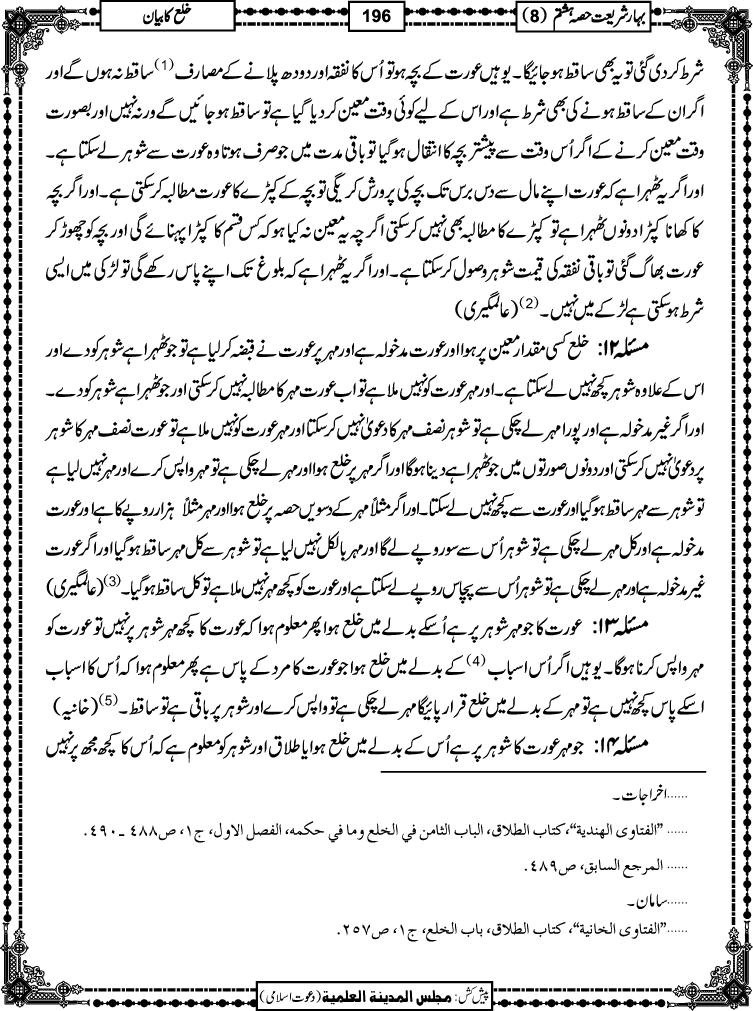 بہارشریعت حصہ ہشتم (8)
196
خلع کا بیان
شرط کردی گئی تو یہ بھی ساقط ہوجائیگا۔ یوہیں عورت کے بچہ ہو تو اُس کا نفقہ اور دودھ پلانے کے مصارف (1) ساقط نہ ہوں گے اور
اگر ان کے ساقط ہونے کی بھی شرط ہے اور اس کے لیے کوئی وقت معین کر دیا گیا ہے تو ساقط ہو جائیں گے ورنہ نہیں اور بصورت
وقت معین کرنے کے اگر اُس وقت سے پیشتر بچہ کا انتقال ہوگیا تو باقی مدت میں جو صرف ہوتا وہ عورت سے شوہر لے سکتا ہے۔
اور اگر یہ ٹھہرا ہے کہ عورت اپنے مال سے دس برس تک بچہ کی پرورش کریگی تو بچہ کے کپڑے کا عورت مطالبہ کرسکتی ہے۔ اور اگر بچہ
کا کھانا کپڑا دونوں ٹھہرا ہے تو کپڑے کا مطالبہ بھی نہیں کرسکتی اگرچہ یہ معین نہ کیا ہو کہ کس قسم کا کپڑا پہنائے گی اور بچہ کو چھوڑ کر
عورت بھاگ گئی تو باقی نفقہ کی قیمت شوہر وصول کرسکتا ہے۔ اور اگر یہ ٹھہرا ہے کہ بلوغ تک اپنے پاس رکھے گی تو لڑکی میں ایسی
شرط ہوسکتی ہے لڑکے میں نہیں۔ (2) (عالمگیری)
مسئلہ ۱۲: خلع کسی مقدار معین پر ہوا اور عورت مدخولہ ہے اور مہر پر عورت نے قبضہ کر لیا ہے تو جو ٹھہرا ہے شوہر کو دے اور
اس کے علاوہ شوہر کچھ نہیں لے سکتا ہے۔ اور مہر عورت کو نہیں ملا ہے تو اب عورت مہر کا مطالبہ نہیں کرسکتی اور جو ٹھہرا ہے شوہر کو دے۔
اور اگر غیر مدخولہ ہے اور پورا مہر لے چکی ہے تو شوہر نصف مہر کا دعویٰ نہیں کرسکتا اور مہر عورت کو نہیں ملا ہے تو عورت نصف مہر کا شوہر
پر دعویٰ نہیں کرسکتی اور دونوں صورتوں میں جو ٹھہرا ہے دینا ہوگا اور اگر مہر پر خلع ہوا اور مہر لے چکی ہے تو مہر واپس کرے اور مہر نہیں لیا ہے
تو شوہر سے مہر ساقط ہوگیا اور عورت سے کچھ نہیں لے سکتا۔ اور اگر مثلاً مہر کے دسویں حصہ پر خلع ہوا اور مہر مثلاً ہزار روپے کا ہے اور عورت
مدخولہ ہے اور کل مہر لے چکی ہے تو شوہر اُس سے سو روپے لے گا اور مہر بالکل نہیں لیا ہے تو شوہر سے کل مہر ساقط ہوگیا اور اگر عورت
غیر مدخولہ ہے اور مہر لے چکی ہے تو شوہر اُس سے پچاس روپے لے سکتا ہے اور عورت کو کچھ مہر نہیں ملا ہے تو کل ساقط ہوگیا۔ (3) (عالمگیری)
مسئلہ ۱۳: عورت کا جو مہر شوہر پر ہے اُسکے بدلے میں خلع ہوا پھر معلوم ہوا کہ عورت کا کچھ مہر شوہر پر نہیں تو عورت کو
مہر واپس کرنا ہوگا۔ یوہیں اگر اُس اسباب (4) کے بدلے میں خلع ہوا جو عورت کا مرد کے پاس ہے پھر معلوم ہوا کہ اُس کا اسباب
اسکے پاس کچھ نہیں ہے تو مہر کے بدلے میں خلع قرار پائیگا مہر لے چکی ہے تو واپس کرے اور شوہر پر باقی ہے تو ساقط۔ (5) (خانیہ)
مسئلہ ۱۴: جو مہر عورت کا شوہر پر ہے اُس کے بدلے میں خلع ہوا یا طلاق اور شوہر کو معلوم ہے کہ اُس کا کچھ مجھ پر نہیں
......اخراجات۔
......"الفتاوی الهندية"، كتاب الطلاق، الباب الثامن في الخلع وما في حكمه، الفصل الاول، ج١، ص٤٨٨ ـ ٤٩٠.
...... المرجع السابق، ص٤٨٩.
......سامان۔
......"الفتاوی الخانية"، كتاب الطلاق، باب الخلع، ج١، ص٢٥٧.
پیش کش: مجلس المدينة العلمية (دعوت اسلامی)